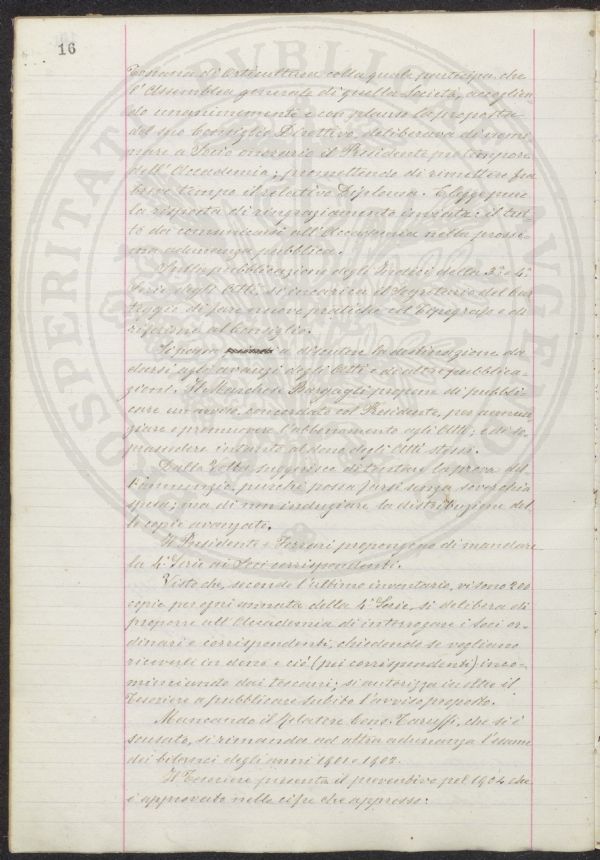 16
Toscana di Orticultura colla quale partecipa, che
l'Assemblea generale di quella Società, accoglien
do unanimemente e con plauso la proposta
del suo Consiglio Direttivo, deliberava di nomi
nare a Socio onorario il Presidente pro tempore
dell'Accademia; promettendo di rimettere fra
breve tempo il relativo Diploma. E legge pure
la risposta di ringraziamento inviata: il tut
to da comunicarsi all'Accademia nella prossi
ma adunanza pubblica.
Sulla pubblicazione degli Indici della 3ª e 4ª
Serie degli Atti, si incarica il Segretario del Car
teggio di fare nuove pratiche col Tipografo e di
riferirne al Consiglio.
Si passa a discutere la destinazione da
darsi agli avanzi degli Atti e di altre pubblica-
zioni. Il Marchese Bargagli propone di pubbli-
care un avviso, concordato col Presidente, per annun
ziare e promuovere l'abbonamento agli Atti; e di so
prassedere intanto al dono degli Atti stessi.
Dalla Volta suggerisce di tentare la prova del
l'annunzio, purché possa farsi senza soverchia
spesa; ma di non indugiare la distribuzione del
le copie avanzate.
Il Presidente e Ferrari propongono di mandare
la 4ª Serie ai Soci corrispondenti.
Visto che, secondo l'ultimo inventario, vi sono 200
copie per ogni annata della 4ª Serie, si delibera di
proporre all'Accademia di interrogare i soci or-
dinari e corrispondenti, chiedendo se vogliano
riceverli in dono e ciò (pei corrispondenti) inco-
minciando dai toscani; si autorizza inoltre il
Tesoriere a pubblicare subito l'avviso proposto.
Mancando il Relatore Cons. Caruffi, che si è
scusato, si rimanda ad altra adunanza l'esame
dei bilanci degli anni 1901 e 1902.
Il Tesoriere presenta il preventivo pel 1904 che
è approvato nelle cifre che appresso: